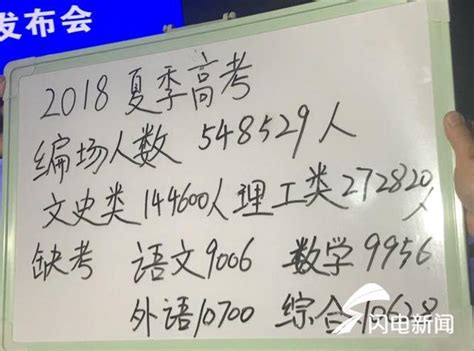 发布会
2018 夏季高考
编场人数 548529人
文史类144600人理工类272820人
缺考 语文9006 数学9956
外语10700 综合10628
闪电新闻